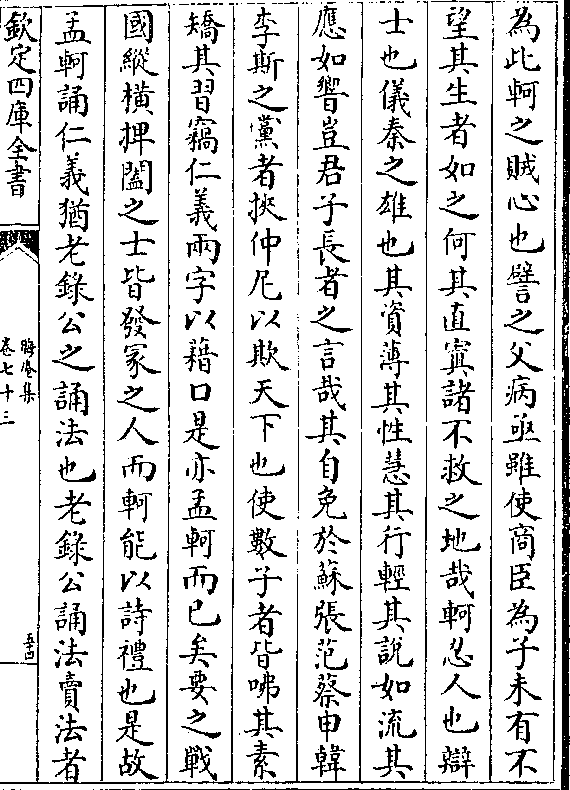 為此軻之賊心也譬之父病亟雖使商臣為子未有不
望其生者如之何其直寘諸不救之地哉軻忍人也辯
士也儀秦之雄也其資薄其性慧其行輕其說如流其
應如響豈君子長者之言哉其自免於蘇張范蔡申韓
李斯之黨者挾仲尼以欺天下也使數子者皆咈其素
矯其習竊仁義兩字以藉口是亦孟軻而已矣要之戰
國縱橫捭闔之士皆發冢之人而軻能以詩禮也是故
孟軻誦仁義猶老錄公之誦法也老錄公誦法賣法者
欽定四庫全書
晦庵集
卷七十三
五四